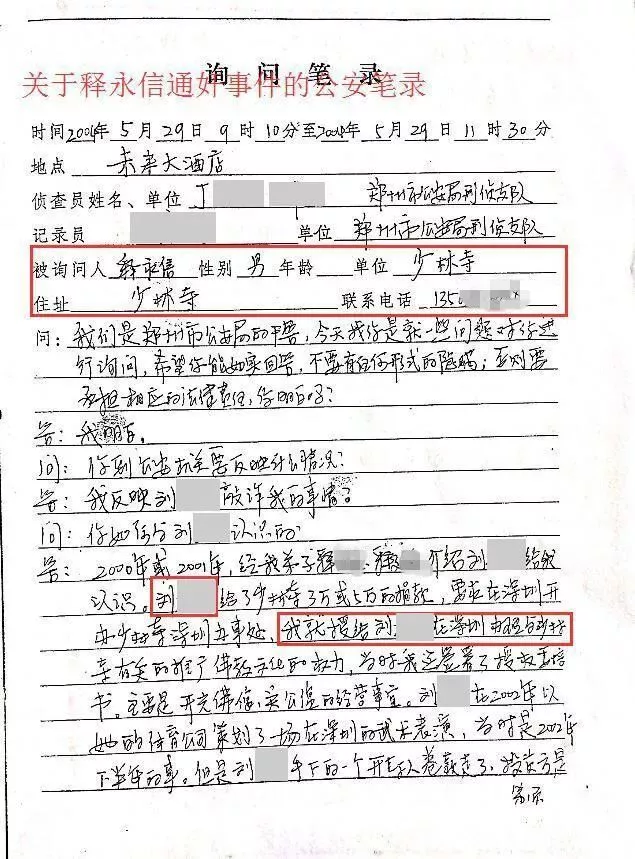 询问笔录
关于释永信通奸事件的公安笔录
时间2004年5月29日9时10分至2004年5月29日11时30分
地点 未来大酒店
侦查员姓名、单位 丁 郑州市公安局刑侦支队
记录员 单位 郑州市公安局刑侦支队
被询问人 释永信 性别 男 年龄 单位 少林寺
住址 少林寺 联系电话 1350
问：我们是郑州市公安局的干警，今天找你是就一些问题对你进
行询问，希望你能如实回答，不要有任何形式的隐瞒，否则要
承担相应的法律责任，你明白吗？
答：我明白。
问：你到公安机关要反映什么情况？
答：我反映刘 敲诈我的事情？
问：你如何与刘 认识的
答：2000年或2001年，经我弟子释 、释 介绍刘 给我
认识。刘 给了少林寺3万或5万的捐款，要求在深圳开
办少林寺深圳办事处，我就授给刘 在深圳办理与少林
寺有关的推广佛教文化的权力，当时我还签署了授权委托
书。主要是开光佛像、 的经营事宜。刘 在2002年以
她的体育公司策划了一场在深圳的武术表演，当时是2002年
下半年的事。但是刘 手下的一个 卷款走了，投资方是